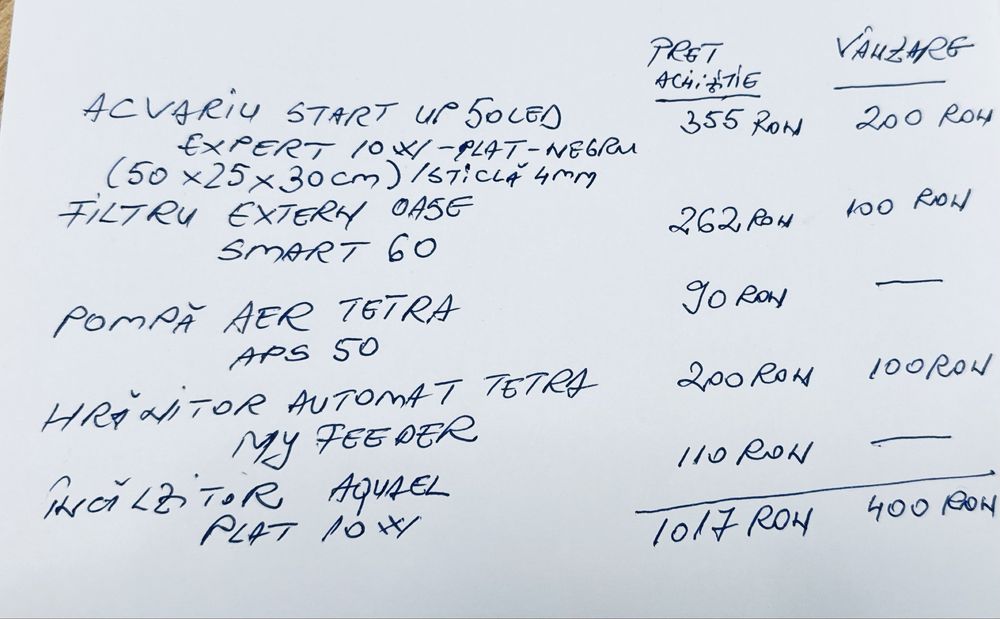 PREȚ VÂNZARE
ACHIZIȚIE
ACVARIU START UP 50 LED 355 RON 200 RON
EXPERT 10W-PLAT-NEGRU
(50x25x30cm)/STICLĂ 4mm
FILTRU EXTERN OASE 262 RON 100 RON
SMART 60
POMPĂ AER TETRA 90 RON —
APS 50
HRĂNITOR AUTOMAT TETRA 200 RON 100 RON
MY FEEDER
ÎNCĂLZITOR AQUAEL 110 RON —
PLAT 10W
1017 RON 400 RON